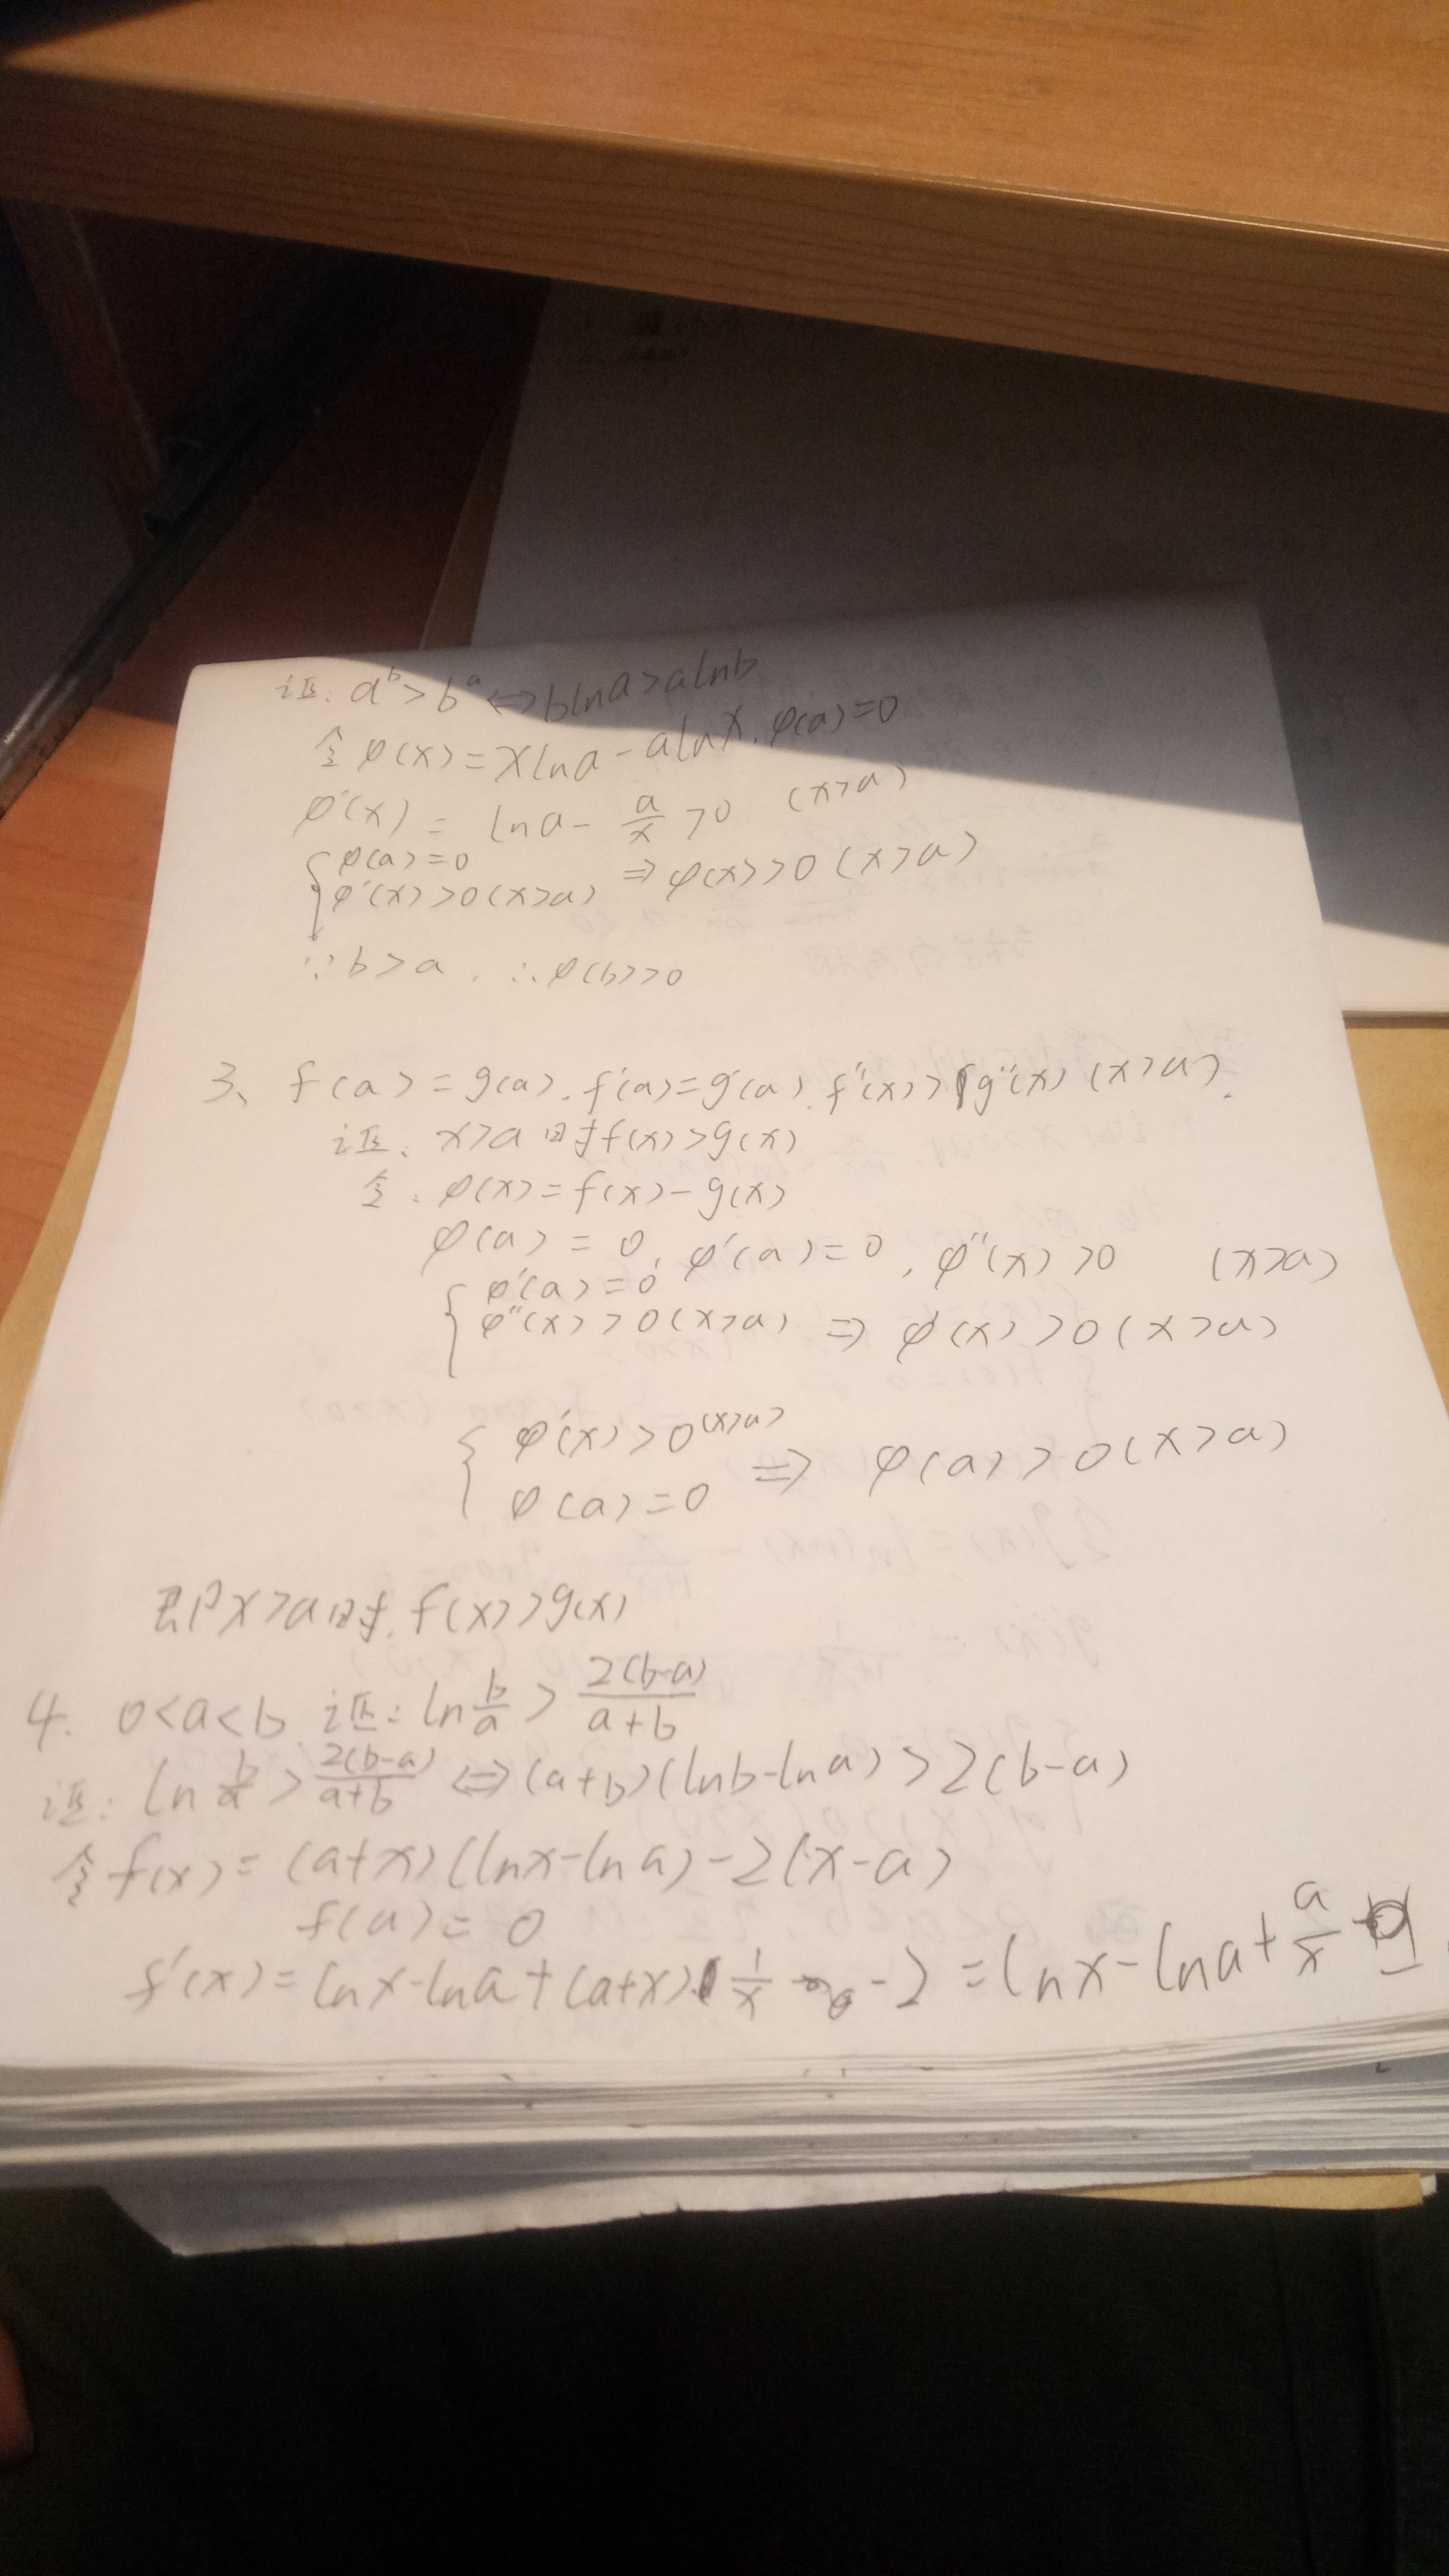 证: a^b > b^a ⟺ blna > alnb
令 φ(x) = xlna - alnx. φ(a) = 0
φ'(x) = lna - a/x > 0 (x>a)
{ φ(a) = 0
φ'(x) > 0 (x>a) ⇒ φ(x) > 0 (x>a)
∵ b > a. ∴ φ(b) > 0
3、 f(a) = g(a). f'(a) = g'(a). f''(x) > g''(x) (x>a).
证、 x>a 时 f(x) > g(x)
令: φ(x) = f(x) - g(x)
φ(a) = 0, φ'(a) = 0, φ''(x) > 0 (x>a)
{ φ'(a) = 0
φ''(x) > 0 (x>a) ⇒ φ'(x) > 0 (x>a)
{ φ'(x) > 0 (x>a)
φ(a) = 0 ⇒ φ(a) > 0 (x>a)
即 x>a 时. f(x) > g(x)
4. 0<a<b 证: ln b/a > 2(b-a)/(a+b)
证: ln b/a > 2(b-a)/(a+b) ⟺ (a+b)(lnb-lna) > 2(b-a)
令 f(x) = (a+x)(lnx-lna) - 2(x-a)
f(a) = 0
f'(x) = lnx-lna+(a+x)·1/x -2 = lnx-lna+a/x -1